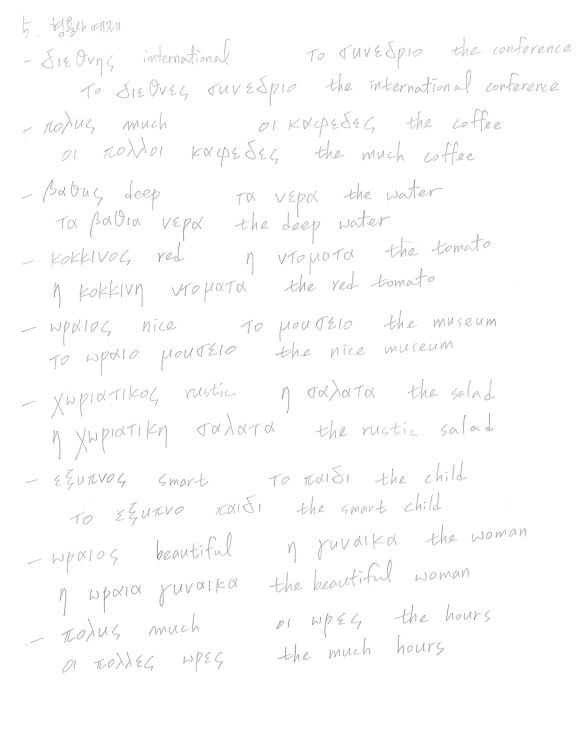 5. 형용사 예제
- διεθνης international το συνεδριο the conference
το διεθνες συνεδριο the international conference
- πολυς much οι καφεδες the coffee
οι πολλοι καφεδες the much coffee
- βαθυς deep τα νερα the water
τα βαθια νερα the deep water
- κοκκινος red η ντοματα the tomato
η κοκκινη ντοματα the red tomato
- ωραιος nice το μουσειο the museum
το ωραιο μουσειο the nice museum
- χωριατικος rustic η σαλατα the salad
η χωριατικη σαλατα the rustic salad
- εξυπνος smart το παιδι the child
το εξυπνο παιδι the smart child
- ωραιος beautiful η γυναικα the woman
η ωραια γυναικα the beautiful woman
- πολυς much οι ωρες the hours
οι πολλες ωρες the much hours